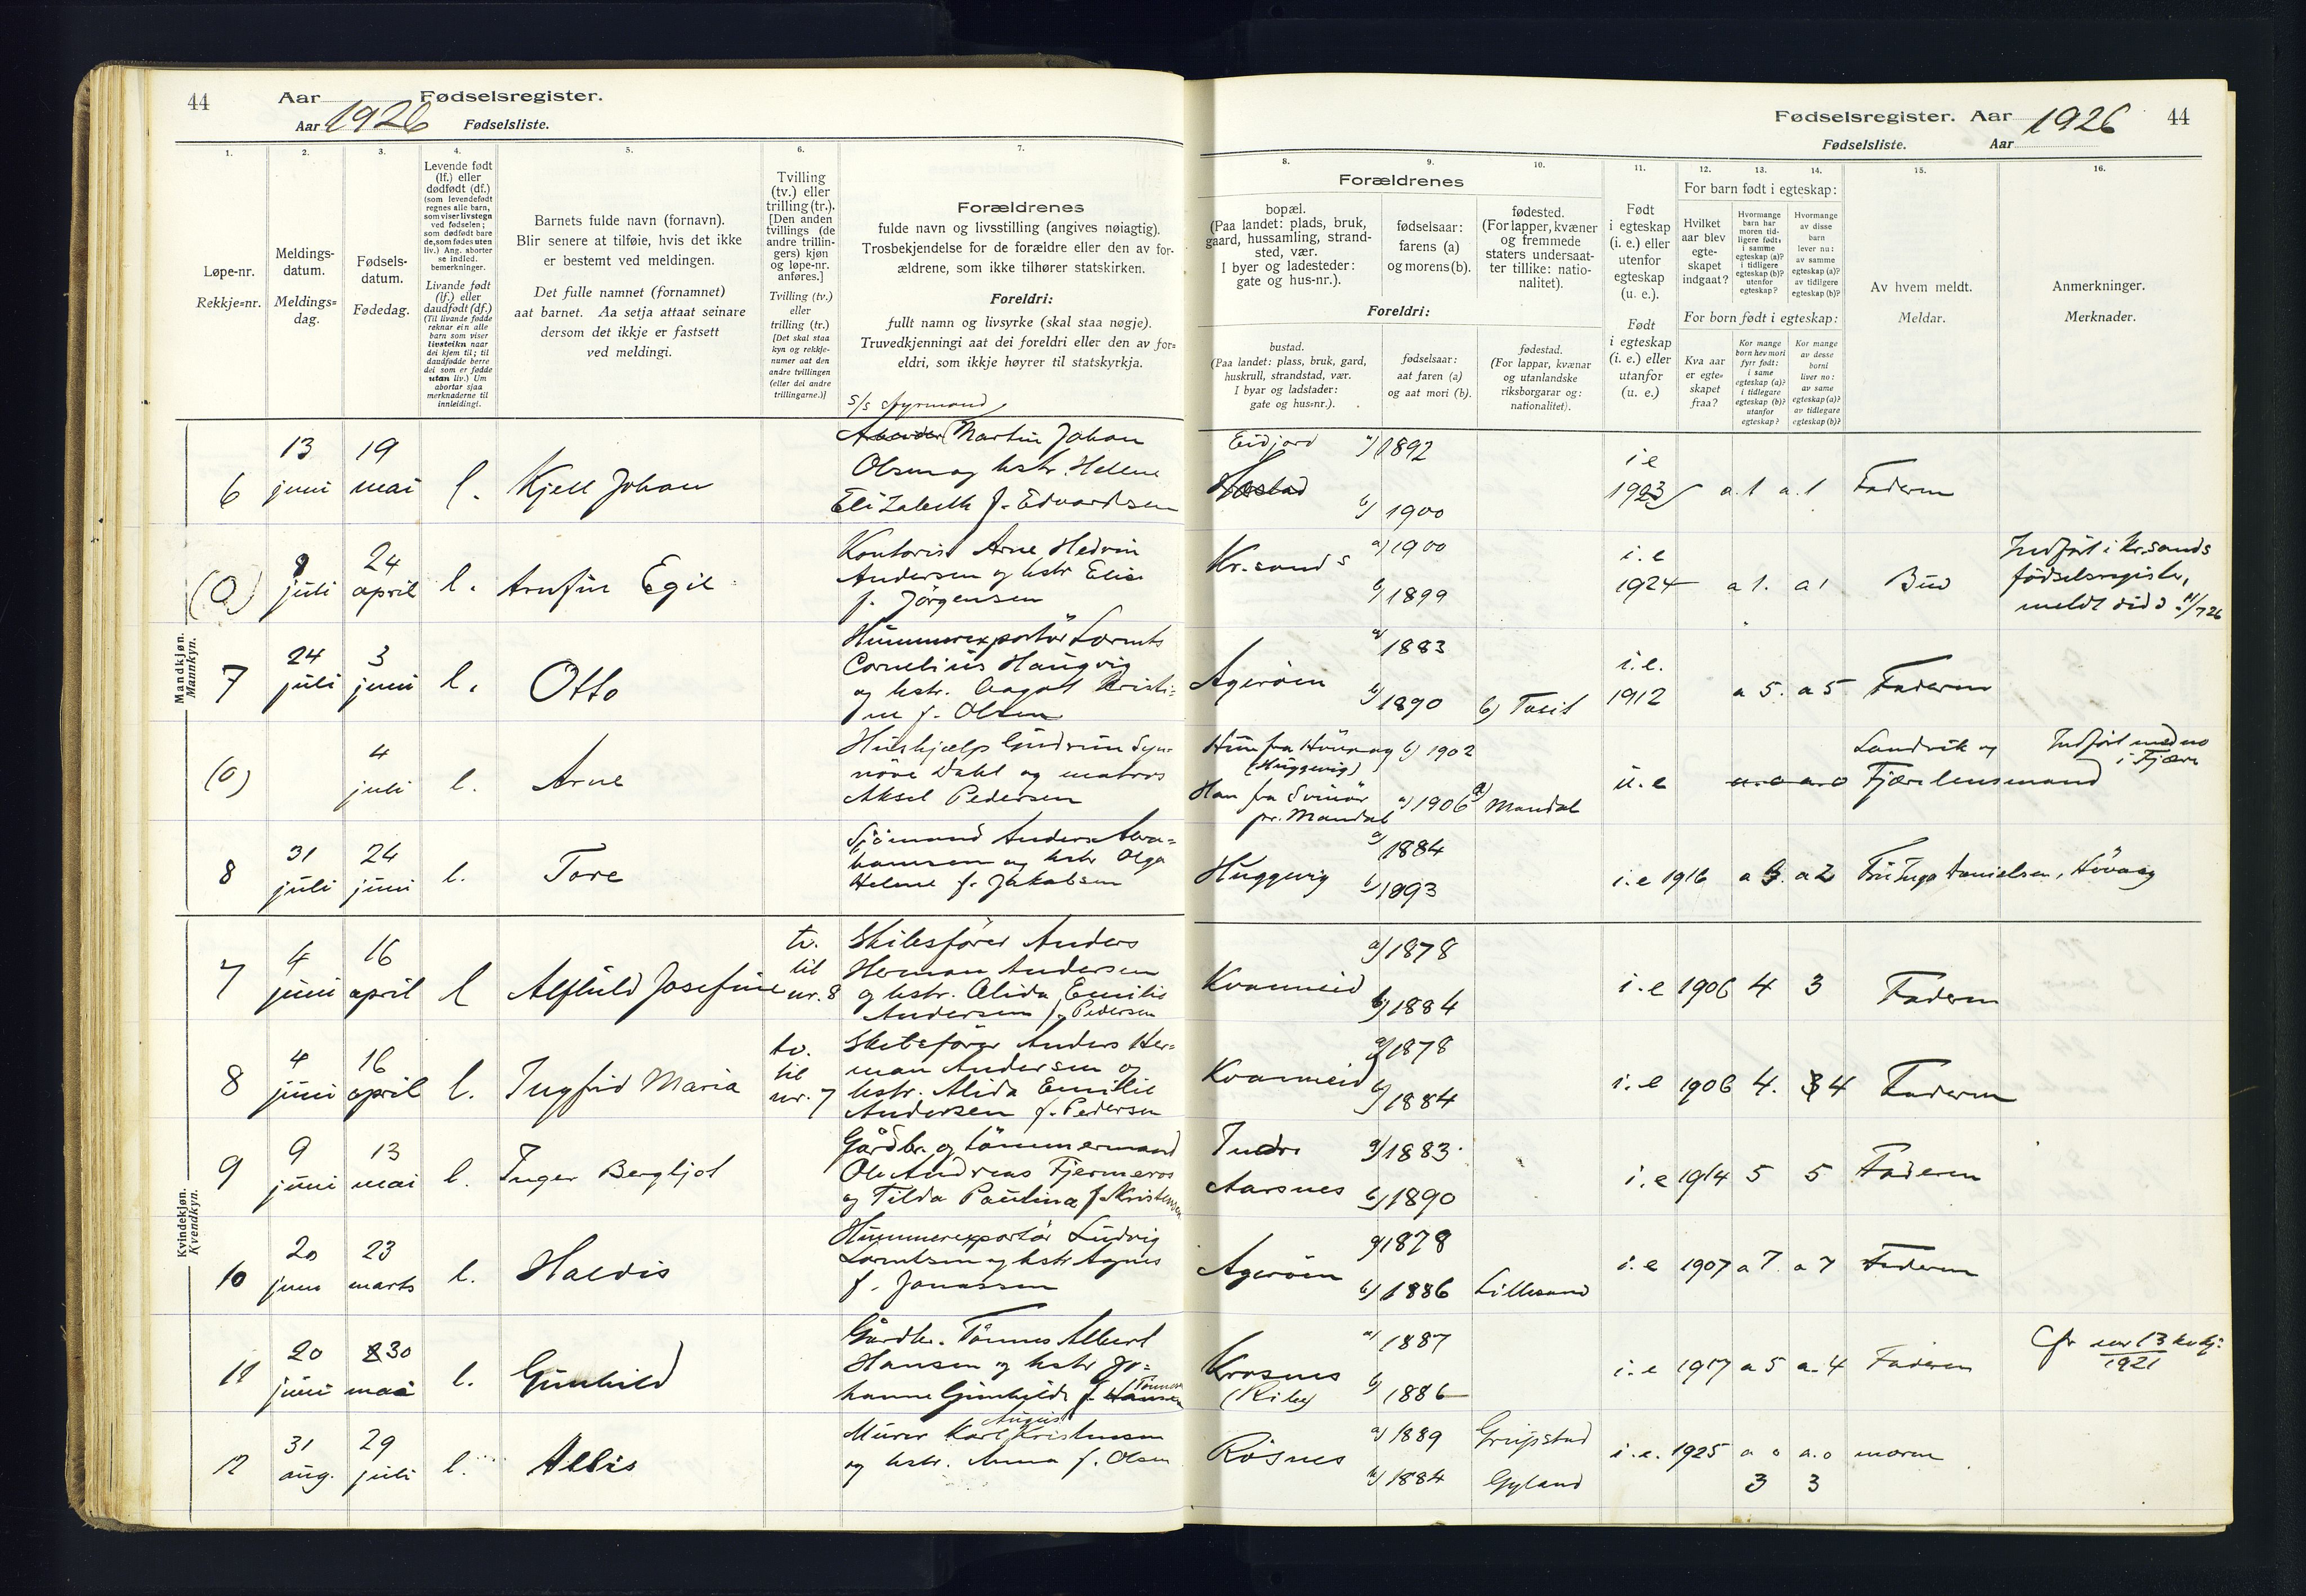 44 Aar 1926 Fødselsregister.
Aar Fødselsliste.
1. 2. 3. 4. 5. 6. 7.
Løpe-nr.
Rekkje=nr.
Meldings-
datum.
Meldings=
dag.
Fødsels-
datum.
Fødedag.
Levende født
(lf.) eller
dødfødt (df.)
(som levendefødt
regnes alle barn,
som viser livstegn
ved fødselen;
som dødfødt bare
de, som fødes uten
liv.) Ang. aborter
se indled.
bemerkninger.
Livande født
(lf.) eller
daudfødt (df.)
(Til livande fødde
reknar ein alle
barn som viser
livsteikn naar
dei kjem til; til
daudfødde berre
dei som er fødde
utan liv.) Um
abortar sjaa
merknaderne til
innleidingi.
Barnets fulde navn (fornavn).
Blir senere at tilføie, hvis det ikke
er bestemt ved meldingen.
Det fulle namnet (fornamnet)
aat barnet. Aa setja attaat seinare
dersom det ikkje er fastsett
ved meldingi.
Tvilling
(tv.) eller
trilling (tr.).
[Den anden
tvillings (de
andre trillin-
gers) kjøn
og løpe-nr.
anføres.]
Tvilling (tv.)
eller
trilling (tr.)
[Det skal staa
kyn og rekkje-
numer aat den
andre tvillingen
(eller dei andre
trillingarne.)]
Forældrenes
fulde navn og livsstilling (angives nøiagtig).
Trosbekjendelse for de forældre eller den av for-
ældrene, som ikke tilhører statskirken.
Foreldri:
fullt namn og livsyrke (skal staa nøgje).
Truvedkjenningi aat dei foreldri eller den av for=
eldri, som ikkje høyrer til statskyrkja.
Mandkjøn.
Mannkyn.
s/s styrmand
6 13 juni 19 mai l. Kjell Johan
Arbeider Martin Johan
Olsen og hstr. Hellene
Elizabeth f. Edvardsen
(0) 8 juli 24 april l. Arnfin Egil
Kontorist Arne Hedvin
Andersen og hstr Elise
f. Jørgensen
7 24 juli 3 juni l. Otto
Hummerexportør Lornts
Cornelius Haugvig
og hstr. Aagot Kristi=
ne f. Olsen
(0) 4 juli l. Arne
Hushjælp Gudrun Syn-
növe Dahl og matros
Aksel Pedersen
8 31 juli 24 juni l. Tore
Sjömand Anders Abra=
hamsen og hstr Olga
Helene f. Jakobsen
Kvindekjøn.
Kvendkyn.
7 4 juni 16 april l Alfhild Josefine tv. til nr. 8
Skibsfører Anders
Herman Andersen
og hstr. Alida Emilie
Andersen f. Pedersen
8 4 juni 16 april l. Ingfrid Maria tv. til nr. 7
Skibsfører Anders Her=
man Andersen og
hstr. Alida Emilie
Andersen f. Pedersen
9 9 juni 13 mai l. Inger Bergljot
Gårdbr. og tömmermand
Ole Andreas Fjermeros
og Tilda Paulina f. Kristensen
10 20 juni 23 marts l. Haldis
Hummerexportør Ludvig
Lorntsen og hstr Agnes
f. Jonassen
11 20 juni 30 mai l. Gunhild
Gårdbr. Tönnes Albert
Hansen og hstr Jo=
hanne Gunhilde f. Hansen Tönnes
12 31 aug. 29 juli l. Allis
Murer Karl August Kristensen
og hstr. Anna f. Olsen
Fødselsregister. Aar 1926 44
Fødselsliste. Aar
8. 9. 10. 11. 12. 13. 14. 15. 16.
Forældrenes
bopæl.
(Paa landet: plads, bruk,
gaard, hussamling, strand-
sted, vær.
I byer og ladesteder:
gate og hus-nr.).
fødselsaar:
farens (a)
og morens (b).
fødested.
(For lapper, kvæner
og fremmede
staters undersaat-
ter tillike: natio-
nalitet).
Foreldri:
bustad.
(Paa landet: plass, bruk, gard,
huskrull, strandstad, vær.
I byar og ladstader:
gate og hus=nr.).
fødselsaar:
aat faren (a)
og aat mori (b).
fødestad.
(For lappar, kvænar
og utanlandske
riksborgarar og:
nationalitet).
Født
i egteskap
(i. e.) eller
utenfor
egteskap
(u. e.).
Født
i egteskap
(i. e.) eller
utanfor
(u. e.)
For barn født i egteskap:
Hvilket
aar blev
egte-
skapet
indgaat?
Hvormange
barn har
moren tid-
ligere født:
i samme
egteskap (a)?
i tidligere
egteskap (b)?
utenfor
egteskap?
Hvormange
av disse
barn
lever nu:
av samme
egteskap (a)?
av tidligere
egteskap (b)?
For born født i egteskap:
Kva aar
er egte=
skapet
fraa?
Kor mange
born hev mori
fyrr født:
i same
egteskap (a)?
i tidlegare
egteskap (b)?
utanfor
egteskap?
Kor mange
av desse
borni
liver no:
av same
egteskap (a)?
av tidlegare
egteskap (b)?
Av hvem meldt.
Meldar.
Anmerkninger.
Merknader.
Eidjord a) 1892 b) 1900 i e 1923 a.1 a.1 Faderen
Kr.sand S a) 1900 b) 1899 i.e 1924 a 1. a 1 Bud
Indført i Kr.sands
fødselsregister,
meldt did d. 11/7 26
Agerøen a) 1883 b) 1890 b) i.e. 1912 a 5. a 5 Faderen
Hun fra Hövaag b) 1902
(Huggevig)
Han fra Svinör a) 1906 a) Mandal
pr. Mandal
u. e Landvik og
Fjære lensmand
Indført med no
i Fjære
Huggevig a) 1884 b) 1893 i. e 1916 a 3. a 2 Fru Inga Danielsen, Hövaag
Kvanneid a) 1878 b) 1884 i. e 1906 4 3 Faderen
Kvanneid a) 1878 b) 1884 i. e 1906 4. 3 4 Faderen
Indre
Aarsnes a) 1883 b) 1890 i. e 1914 5 5 Faderen
Agerøen a) 1878 b) 1886 Lillesand i. e 1907 a 7. a 7 Faderen
Krosnes
(Ribe) a) 1887 b) 1886 i. e 1917 a 5 a. 4 Faderen
Cfr nr 13 kvkj.
1921
Rösnes a) 1889 Grimstad i. e. 1925 a 0 a. 0 moren
b) 1884 Gyland 3 3